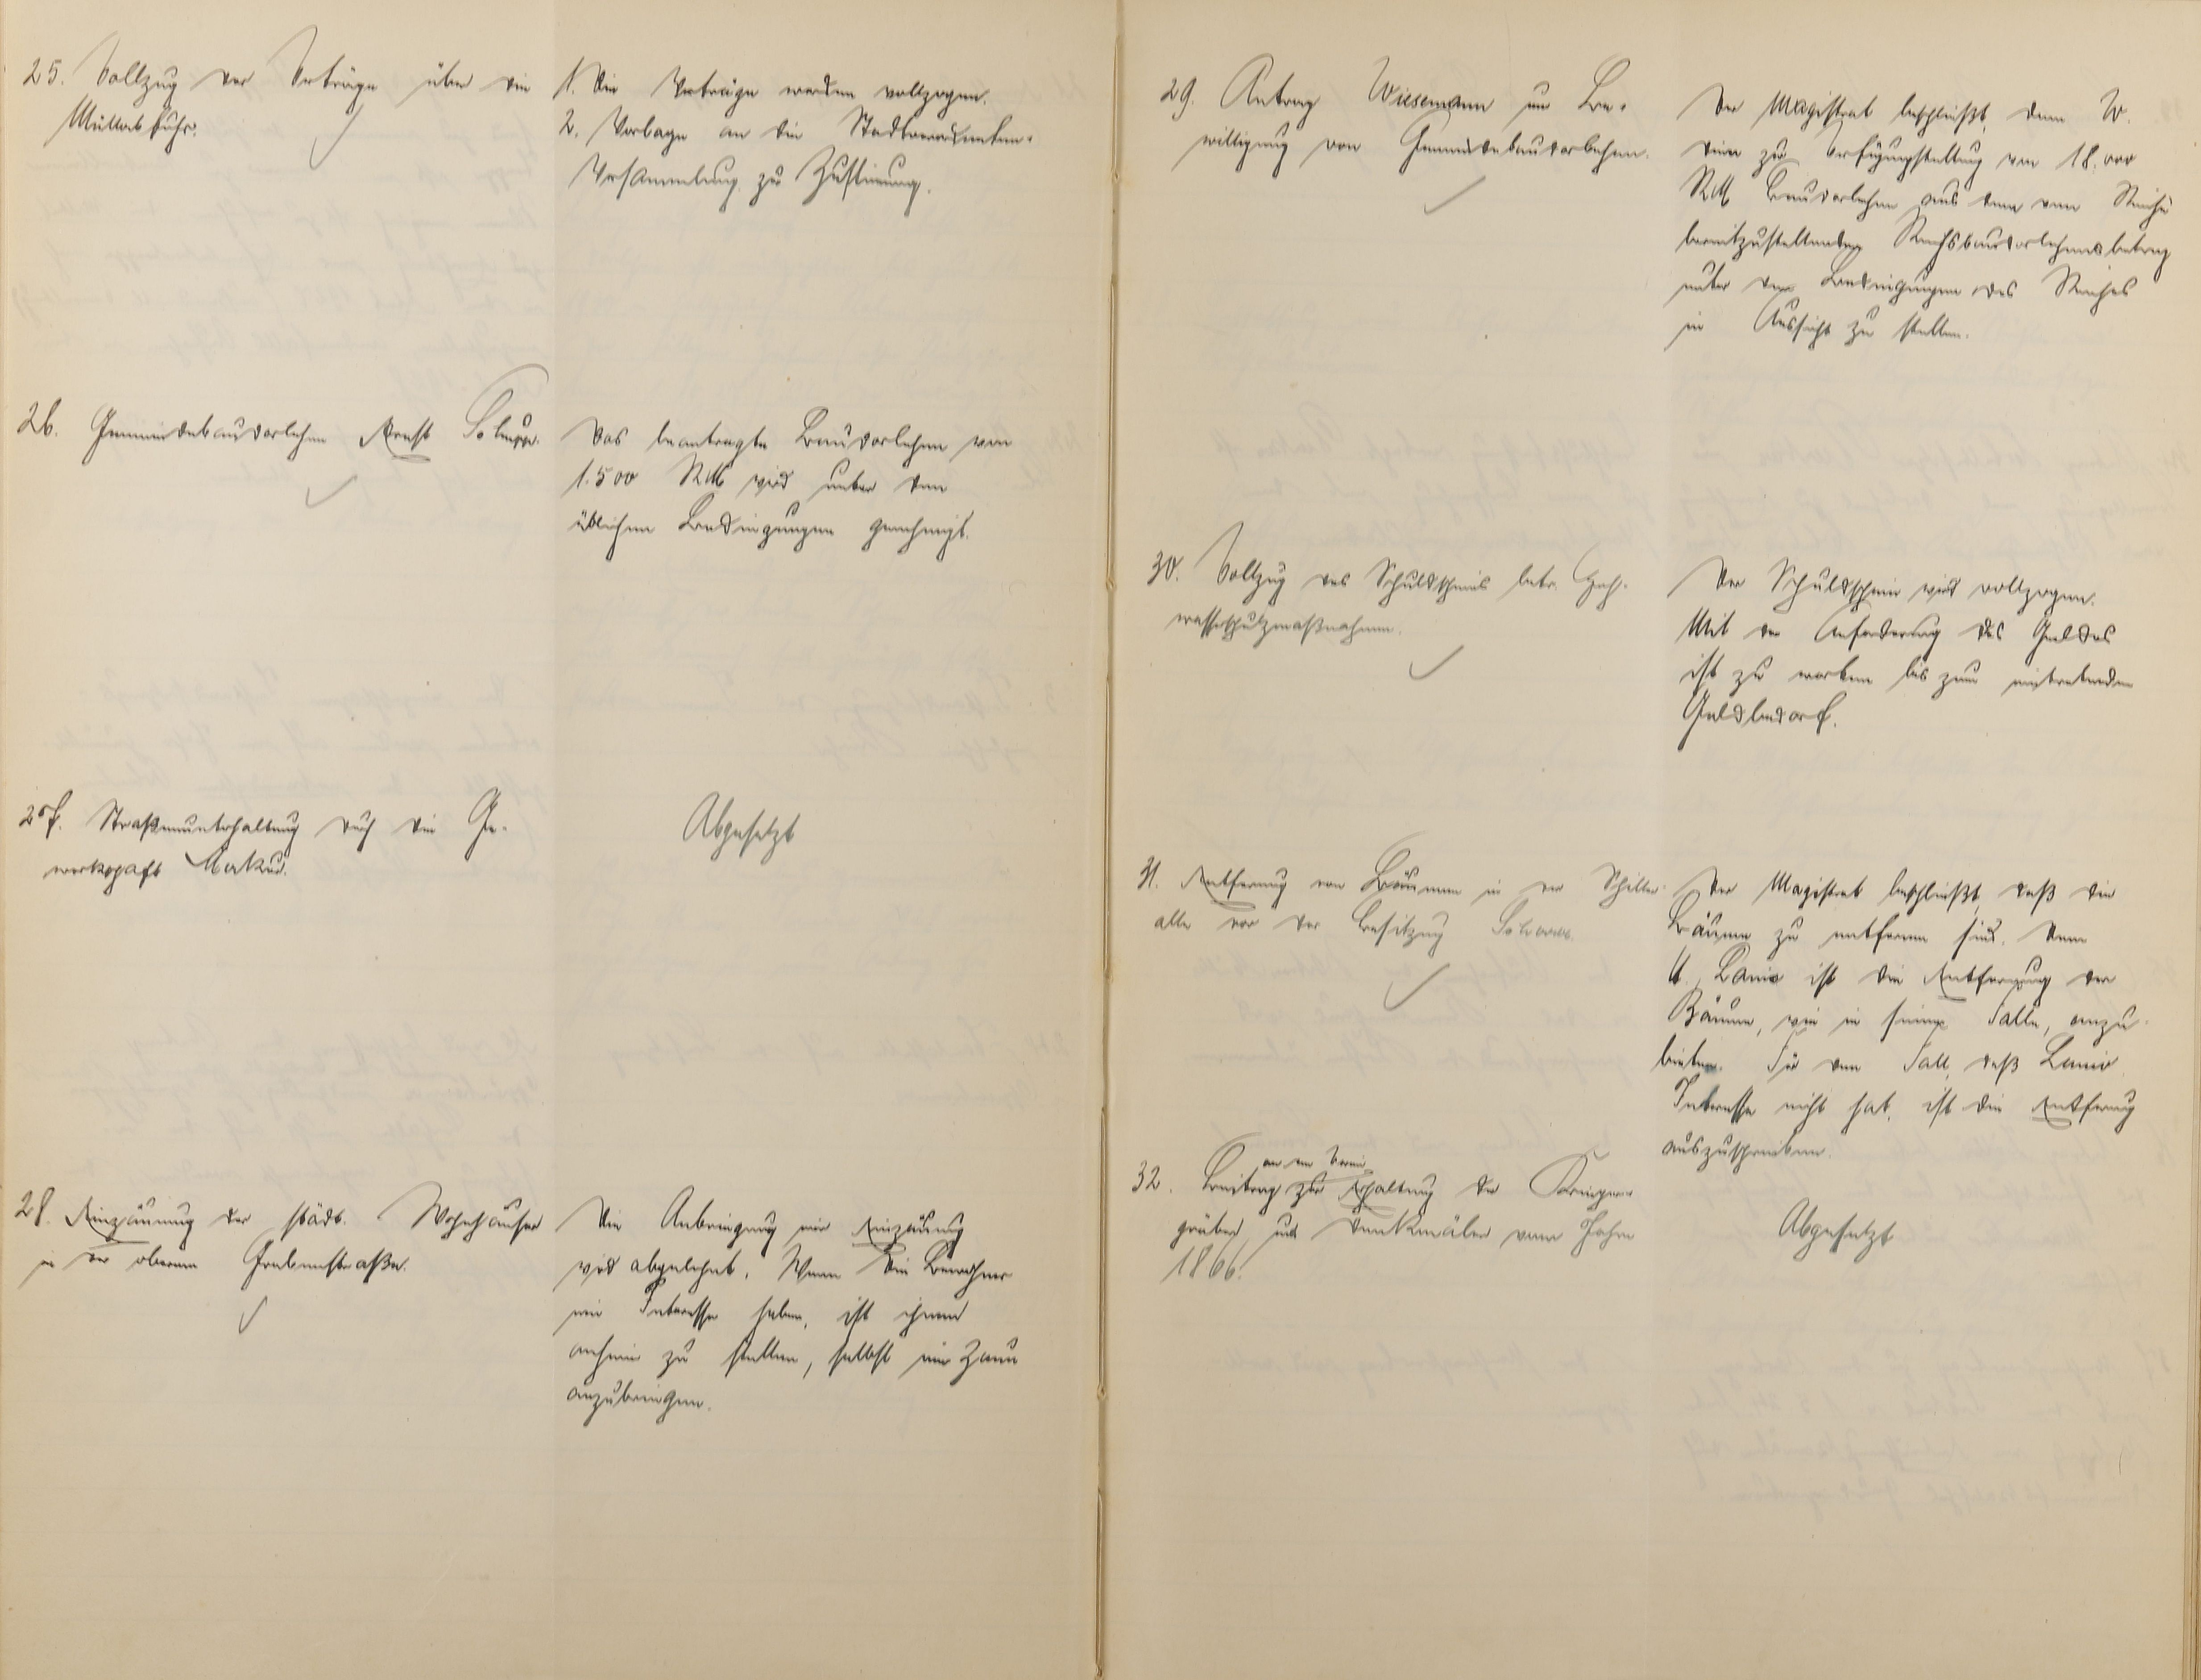 25. Vollzug der Verträge über die
Müllabfuhr.
1. Die Verträge werden vollzogen.
2. Vorlage an die Stadtverordneten-
versammlung zu Zustimmung.
26. Gemeindebaudarlehen Ernst
Das beantragte Baudarlehen von
1.500 RM wird unter den
üblichen Bedingungen genehmigt.
27. Straßenunterhaltung durch die Ge-
werkschaft Merkur.
Abgesetzt
28. Einzäunung der städt. Wohnhäuser
in der oberen Grabenstraße.
Die Anbringung eine Einzäunung
wird abgelehnt. Wenn die Bewohner
ein Interesse haben, ist ihnen
anheim zu stellen, selbst ein Zaun
anzubringen.
29. Antrag Wiesemann um Be-
willigung von Gemeindebaudarlehen.
Der Magistrat beschließt, dem W.
eine zur Verfügungstellung von 18.000
RM Baudarlehen aus dem vom Reiche
bereitzustellenden Reichsbaudarlehensbetrag
unter den Bedingungen des Reiches
in Aussicht zu stellen.
30. Vollzug des Schuldscheins betr. Hoch-
wasserschutzmaßnahmen.
Der Schuldschein wird vollzogen.
Mit der Anforderung des Geldes
ist zu warten bis zum eintretenden
Geldbedarf.
31. Entfernung von Bäumen in der Schiller-
allee vor der Besitzung
Der Magistrat beschließt, daß die
Bäume zu entfernen sind. Dem
Lanio ist die Entfernung der
Bäume, wie in seinem Falle, anzu-
bieten. Für den Fall, daß Lanio
Interesse nicht hat, ist die Entfernung
auszuschreiben.
32. Beitrag an den Verein zur Erhaltung der Krieger-
gräber und Denkmäler vom Jahre
1866.
Abgesetzt